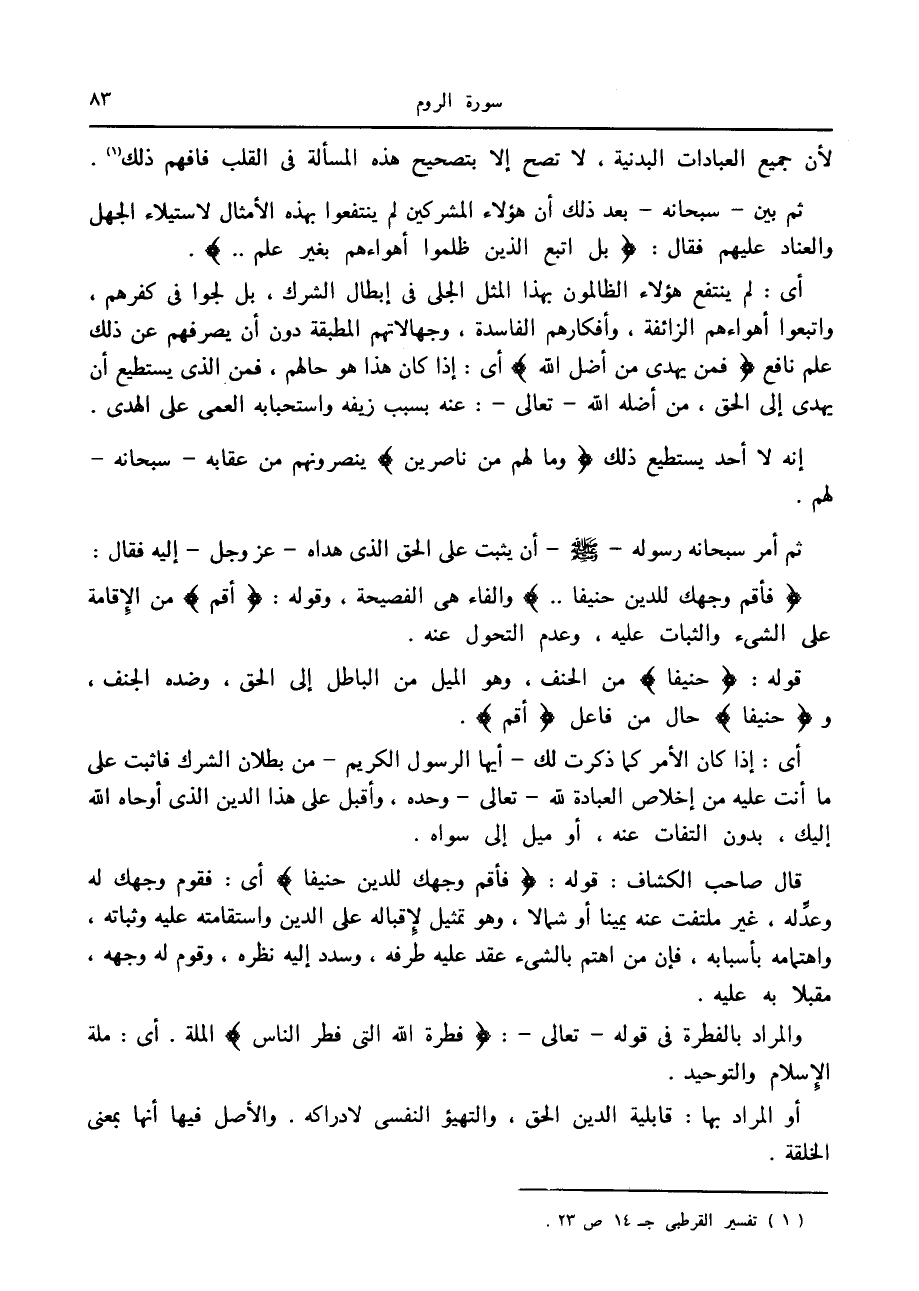 سورة الروم
٨٣
لأن جميع العبادات البدنية ، لا تصح إلا بتصحيح هذه المسألة فى القلب فافهم ذلك(١) .
ثم بين – سبحانه – بعد ذلك أن هؤلاء المشركين لم ينتفعوا بهذه الأمثال لاستيلاء الجهل
والعناد عليهم فقال : ﴿ بل اتبع الذين ظلموا أهواءهم بغير علم .. ﴾ .
أى : لم ينتفع هؤلاء الظالمون بهذا المثل الجلى فى إبطال الشرك ، بل لجوا فى كفرهم ،
واتبعوا أهواءهم الزائفة ، وأفكارهم الفاسدة ، وجهالاتهم المطبقة دون أن يصرفهم عن ذلك
علم نافع ﴿ فمن يهدى من أضل الله ﴾ أى : إذا كان هذا هو حالهم ، فمن الذى يستطيع أن
يهدى إلى الحق ، من أضله الله – تعالى – : عنه بسبب زيفه واستحبابه العمى على الهدى .
إنه لا أحد يستطيع ذلك ﴿ وما لهم من ناصرين ﴾ ينصرونهم من عقابه – سبحانه –
لهم .
ثم أمر سبحانه رسوله – ﷺ – أن يثبت على الحق الذى هداه – عز وجل – إليه فقال :
﴿ فأقم وجهك للدين حنيفا .. ﴾ والفاء هى الفصيحة ، وقوله : ﴿ أقم ﴾ من الإقامة
على الشىء والثبات عليه ، وعدم التحول عنه .
قوله : ﴿ حنيفا ﴾ من الحنف ، وهو الميل من الباطل إلى الحق ، وضده الجنف ،
و ﴿ حنيفا ﴾ حال من فاعل ﴿ أقم ﴾ .
أى : إذا كان الأمر كما ذكرت لك – أيها الرسول الكريم – من بطلان الشرك فاثبت على
ما أنت عليه من إخلاص العبادة لله – تعالى – وحده ، وأقبل على هذا الدين الذى أوحاه الله
إليك ، بدون التفات عنه ، أو ميل إلى سواه .
قال صاحب الكشاف : قوله : ﴿ فأقم وجهك للدين حنيفا ﴾ أى : فقوم وجهك له
وعدِّله ، غير ملتفت عنه يمينا أو شمالا ، وهو تمثيل لإقباله على الدين واستقامته عليه وثباته ،
واهتمامه بأسبابه ، فإن من اهتم بالشىء عقد عليه طرفه ، وسدد إليه نظره ، وقوم له وجهه ،
مقبلا به عليه .
والمراد بالفطرة فى قوله – تعالى – : ﴿ فطرة الله التى فطر الناس ﴾ الملة . أى : ملة
الإسلام والتوحيد .
أو المراد بها : قابلية الدين الحق ، والتهيؤ النفسى لادراكه . والأصل فيها أنها بمعنى
الخلقة .
( ١ ) تفسير القرطبى جـ ١٤ ص ٢٣ .